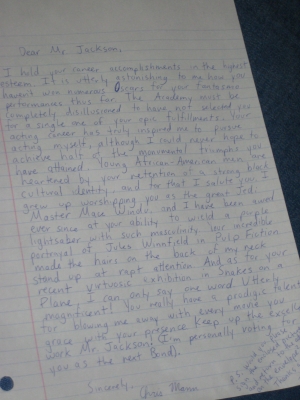 Dear Mr. Jackson,
I hold your career accomplishments in the highest
esteem. It is utterly astonishing to me how you
haven't won numerous Oscars for your tantamount
performances thus far. The Academy must be
completely disillusioned to have not selected you
for a single one of your epic fulfillments. Your
acting career has truly inspired me to pursue
acting myself, although I could never hope to
achieve half of the monumental triumphs you
have attained. Young African-American men are
heartened by your retention of a strong black
cultural identity, and for that I salute you. I
grew up worshipping you as the great Jedi
Master Mace Windu, and I have been awed
ever since at your ability to wield a purple
lightsaber with such masculinity. Your incredible
portrayal of Jules Winnfield in Pulp Fiction
made the hairs on the back of my neck
stand up at rapt attention. And as for your
recent virtuosic exhibition in Snakes on a
Plane, I can only say one word. Utterly
magnificent! You really have a prodigic talent
for blowing me away with every movie you
grace with your presence. Keep up the excellent
work Mr. Jackson! (I'm personally voting for
you as the next Bond).
Sincerely,
Chris Mann